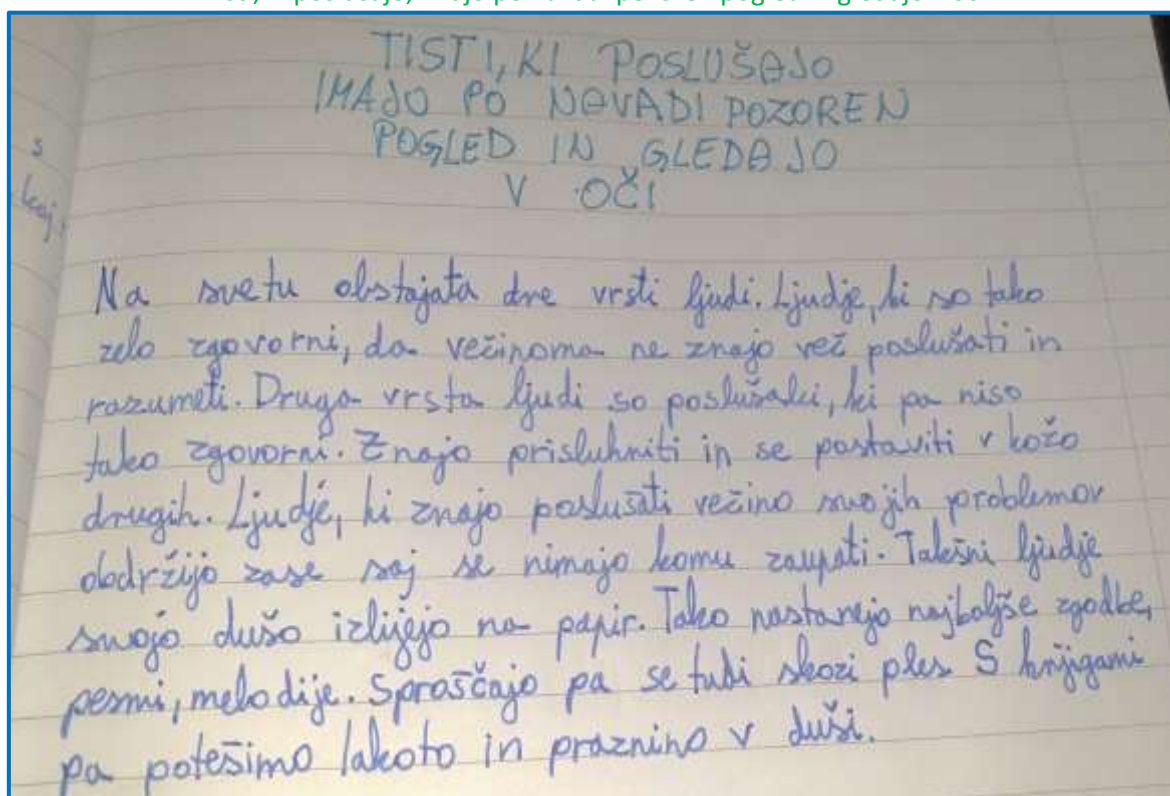 TISTI, KI POSLUŠAJO
IMAJO PO NAVADI POZOREN
POGLED IN GLEDAJO
V OČI
s
kaj,
Na svetu obstajata dve vrsti ljudi. Ljudje, ki so tako
zelo zgovorni, da večinoma ne znajo več poslušati in
razumeti. Druga vrsta ljudi so poslušalci, ki pa niso
tako zgovorni. Znajo prisluhniti in se postaviti v kožo
drugih. Ljudje, ki znajo poslušati večino svojih problemov
obdržijo zase saj se nimajo komu zaupati. Takšni ljudje
svojo dušo izlijejo na papir. Tako nastanejo najboljše zgodbe,
pesmi, melodije. Sproščajo pa se tudi skozi ples S knjigami
pa potešimo lakoto in praznino v duši.